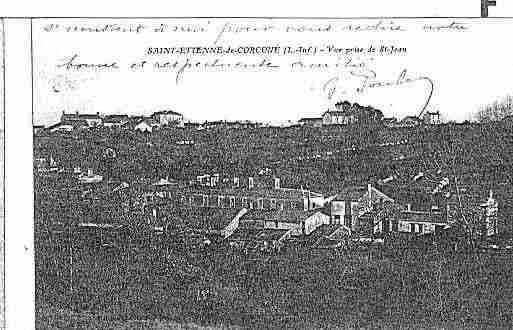 s'unissent à moi pour vous redire notre
SAINT-ETIENNE-de-CORCOUÉ (L.-Inf.) - Vue prise de St-Jean
bonne et respectueuse amitié
F